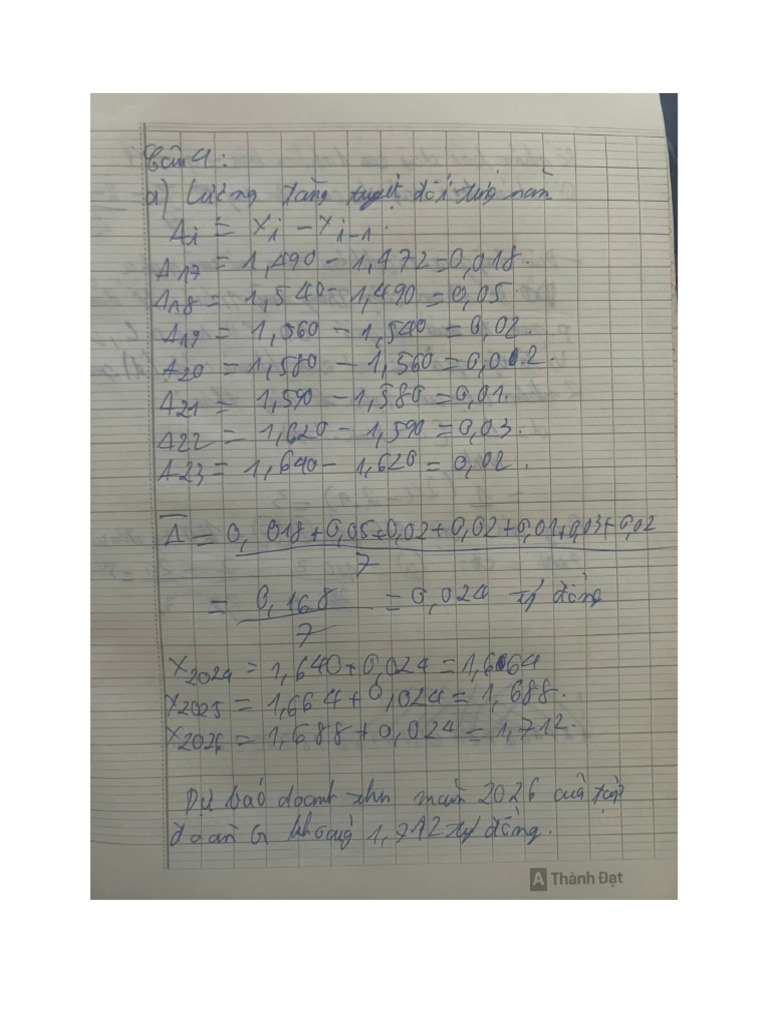 Câu 4:
a) Lượng tăng tuyệt đối từng năm
Δi = Xi - Xi-1.
Δ17 = 1,490 - 1,472 = 0,018.
Δ18 = 1,540 - 1,490 = 0,05
Δ19 = 1,560 - 1,540 = 0,02
Δ20 = 1,580 - 1,560 = 0,02.
Δ21 = 1,590 - 1,580 = 0,01.
Δ22 = 1,620 - 1,590 = 0,03.
Δ23 = 1,640 - 1,620 = 0,02.
Δ̅ = 0,018+0,05+0,02+0,02+0,01+0,03+0,02
7
= 0,168 = 0,024 tỷ đồng
7
X2024 = 1,640+0,024 = 1,664
X2025 = 1,664+0,024 = 1,688.
X2026 = 1,688+0,024 = 1,712.
Dự báo doanh thu năm 2026 của tập
đoàn G khoảng 1,712 tỷ đồng.
A Thành Đạt